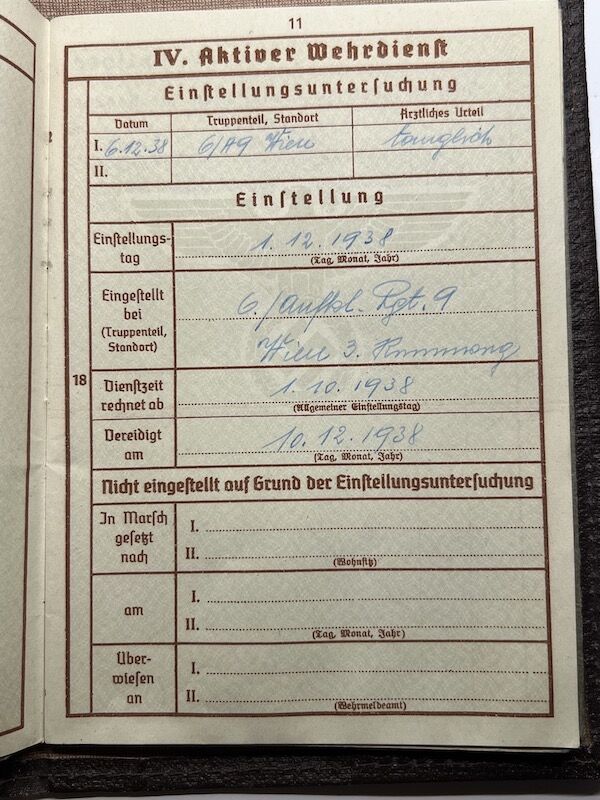 11
IV. Aktiver Wehrdienst
Einstellungsuntersuchung
Datum Truppenteil, Standort Ärztliches Urteil
I. 6.12.38 6/A9 Wien tauglich
II.
Einstellung
Einstellungs-
tag
1. 12. 1938
(Tag, Monat, Jahr)
Eingestellt
bei
(Truppenteil,
Standort)
6./Aufkl. Rgt. 9
Wien 3.
18
Dienstzeit
rechnet ab
1. 10. 1938
(Allgemeiner Einstellungstag)
Vereidigt
am
10. 12. 1938
(Tag, Monat, Jahr)
Nicht eingestellt auf Grund der Einstellungsuntersuchung
In Marsch
gesetzt
nach
I.
II.
(Wohnsitz)
am
I.
II.
(Tag, Monat, Jahr)
Über-
wiesen
an
I.
II.
(Wehrmeldeamt)